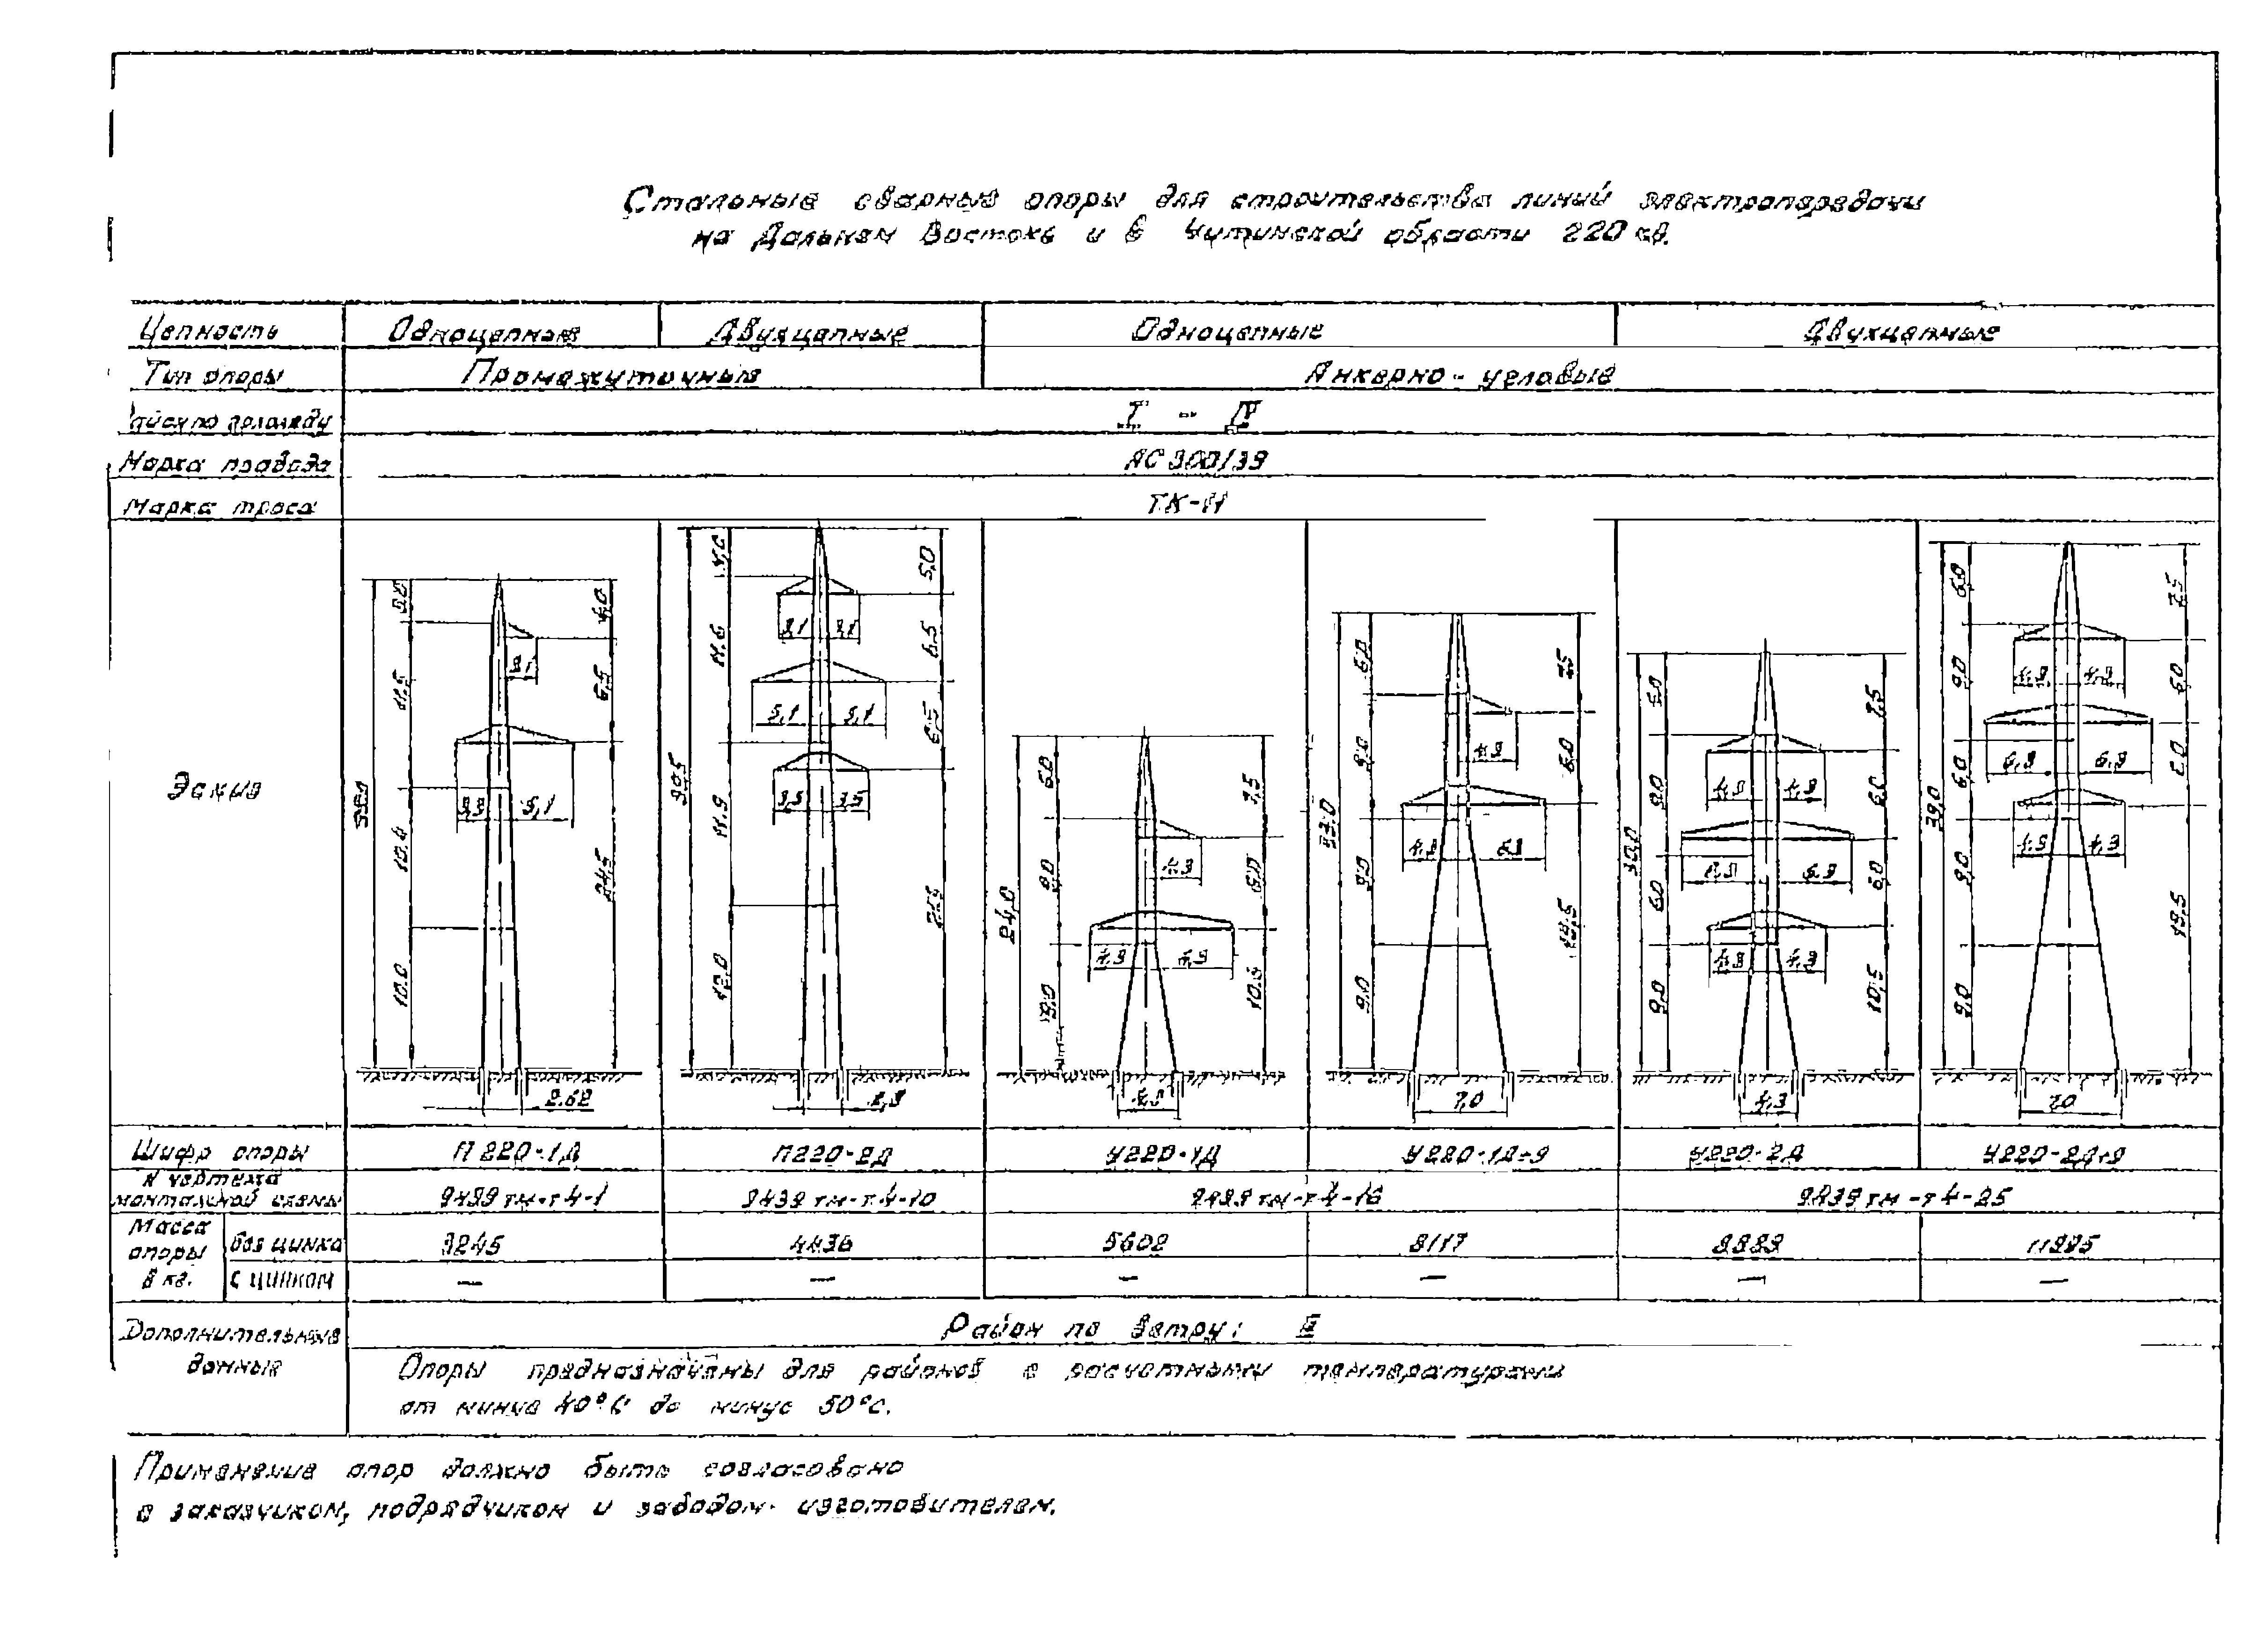 Стальные сварные опоры для строительства линий электропередачи
на Дальнем Востоке и в Читинской области 220 кв.
Цепность Одноцепные Двухцепные Одноцепные Двухцепные
Тип опоры Промежуточные Анкерно-угловые
по гололеду I - IV
Марка провода АС 300/39
Марка троса ТК-11
Эскиз
4,0 5,0
3,0 4,0 6,0 7,5
3,1 3,1 11,6 6,5
3,1 11,5 6,5 4,3 4,3 9,0 6,0
5,1 5,1 6,5 6,0 7,5 5,0 7,5
4,3 9,0 6,0
6,0 7,5 6,3 6,3 6,0 6,0
3,5 3,5 4,3 4,3 9,0 6,0
3,3 5,1 10,4 24,5 11,9 33,0 30,0 39,0
4,3 9,0 6,0 4,3 6,3 9,0 6,3 6,0 6,0 4,3 4,3 9,0
24,0 19,5 19,5
10.0 12,0 4,3 6,3 9,0 9,0 4,3 4,3 9,0 10,5 9,0
2.62 7,0 4,3 7,0
Шифр опоры П220-1Д П220-2Д У220-1Д У220-1Д+9 У220-2Д У220-2Д+9
N чертежа
монтажной схемы 9439тм-т4-1 9439тм-т4-10 9439тм-т4-16 9439тм-т4-25
Масса опоры в кг. без цинка 3245 4436 5602 8117
с цинком — — — — — —
Дополнительные данные Район по ветру: III
Опоры предназначены для районов с расчетными температурами
от минус 40°С до минус 50°С.
Применение опор должно быть согласовано
с заказчиком, подрядчиком и заводом-изготовителем.